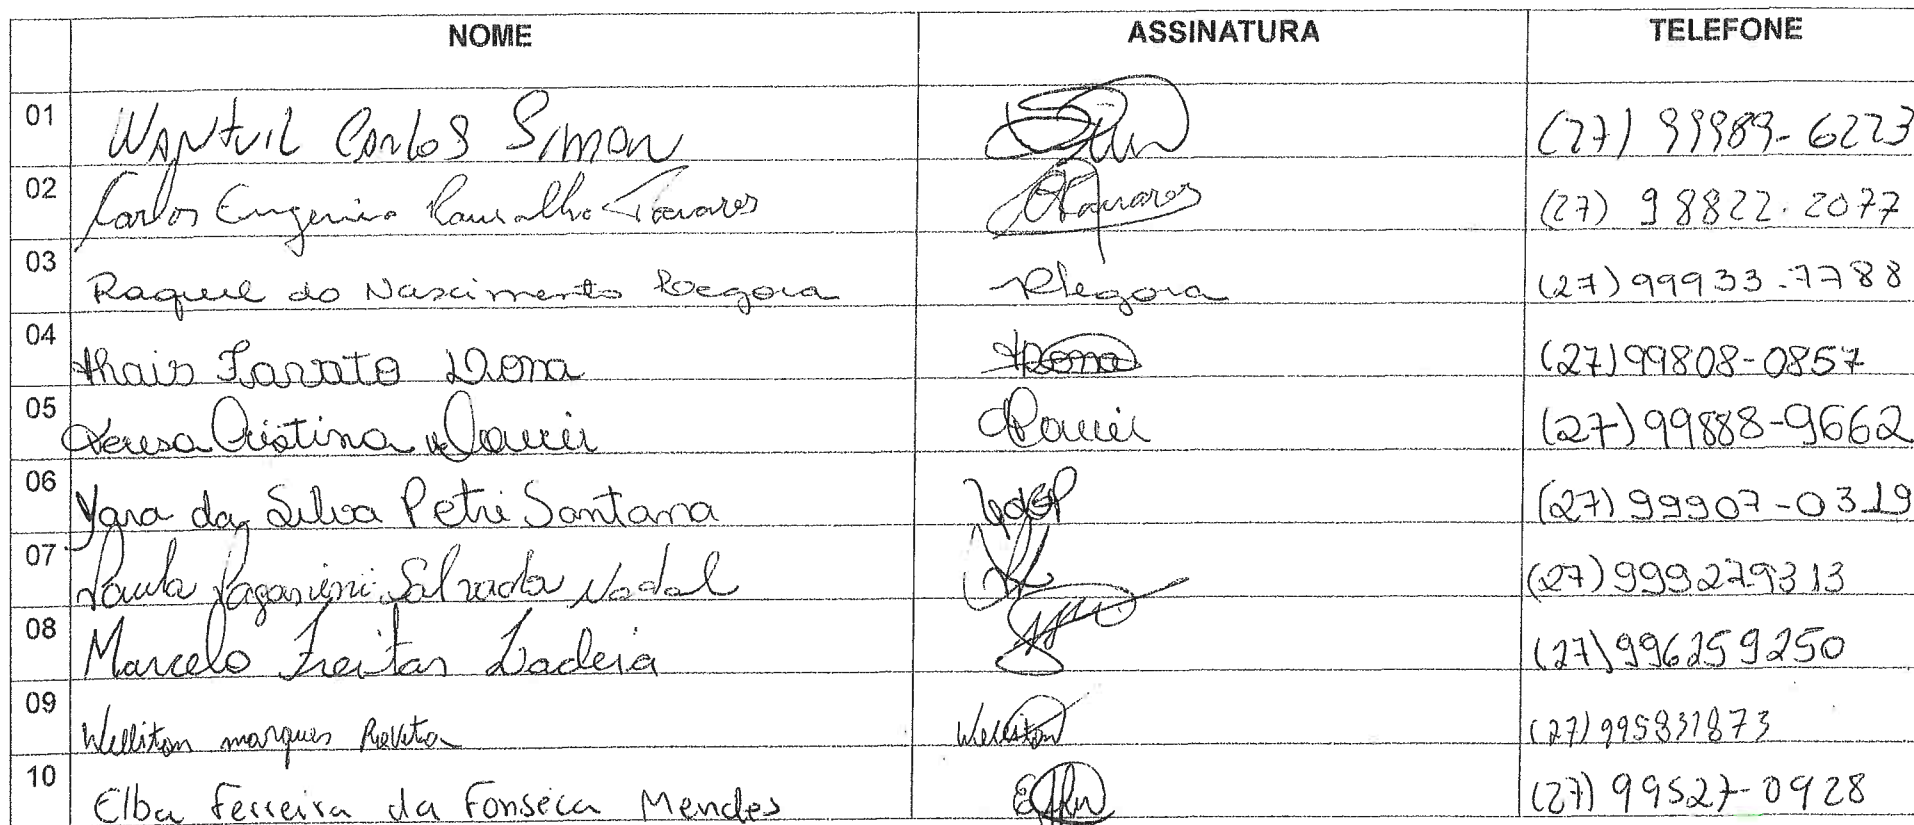 NOME ASSINATURA TELEFONE
01 Wantuil Carlos Simon (27) 99989-6223
02 Carlos Eugenio Ramalho Tavares Tavares (27) 98822.2077
03 Raquel do Nascimento Regora (27) 99933-7788
04 thais Favato Dona (27) 99808-0857
05 Teresa Cristina (27) 99888-9662
06 Yara da Silva Petri Santana YdSP (27) 99907-0319
07 Paula Paganini Salvador Nadal (27) 999279313
08 Marcelo Freitas Ladeia (27) 996259250
09 Welliton marques Welliton (27) 995831873
10 Elba Ferreira da Fonseca Mendes (27) 99527-0928